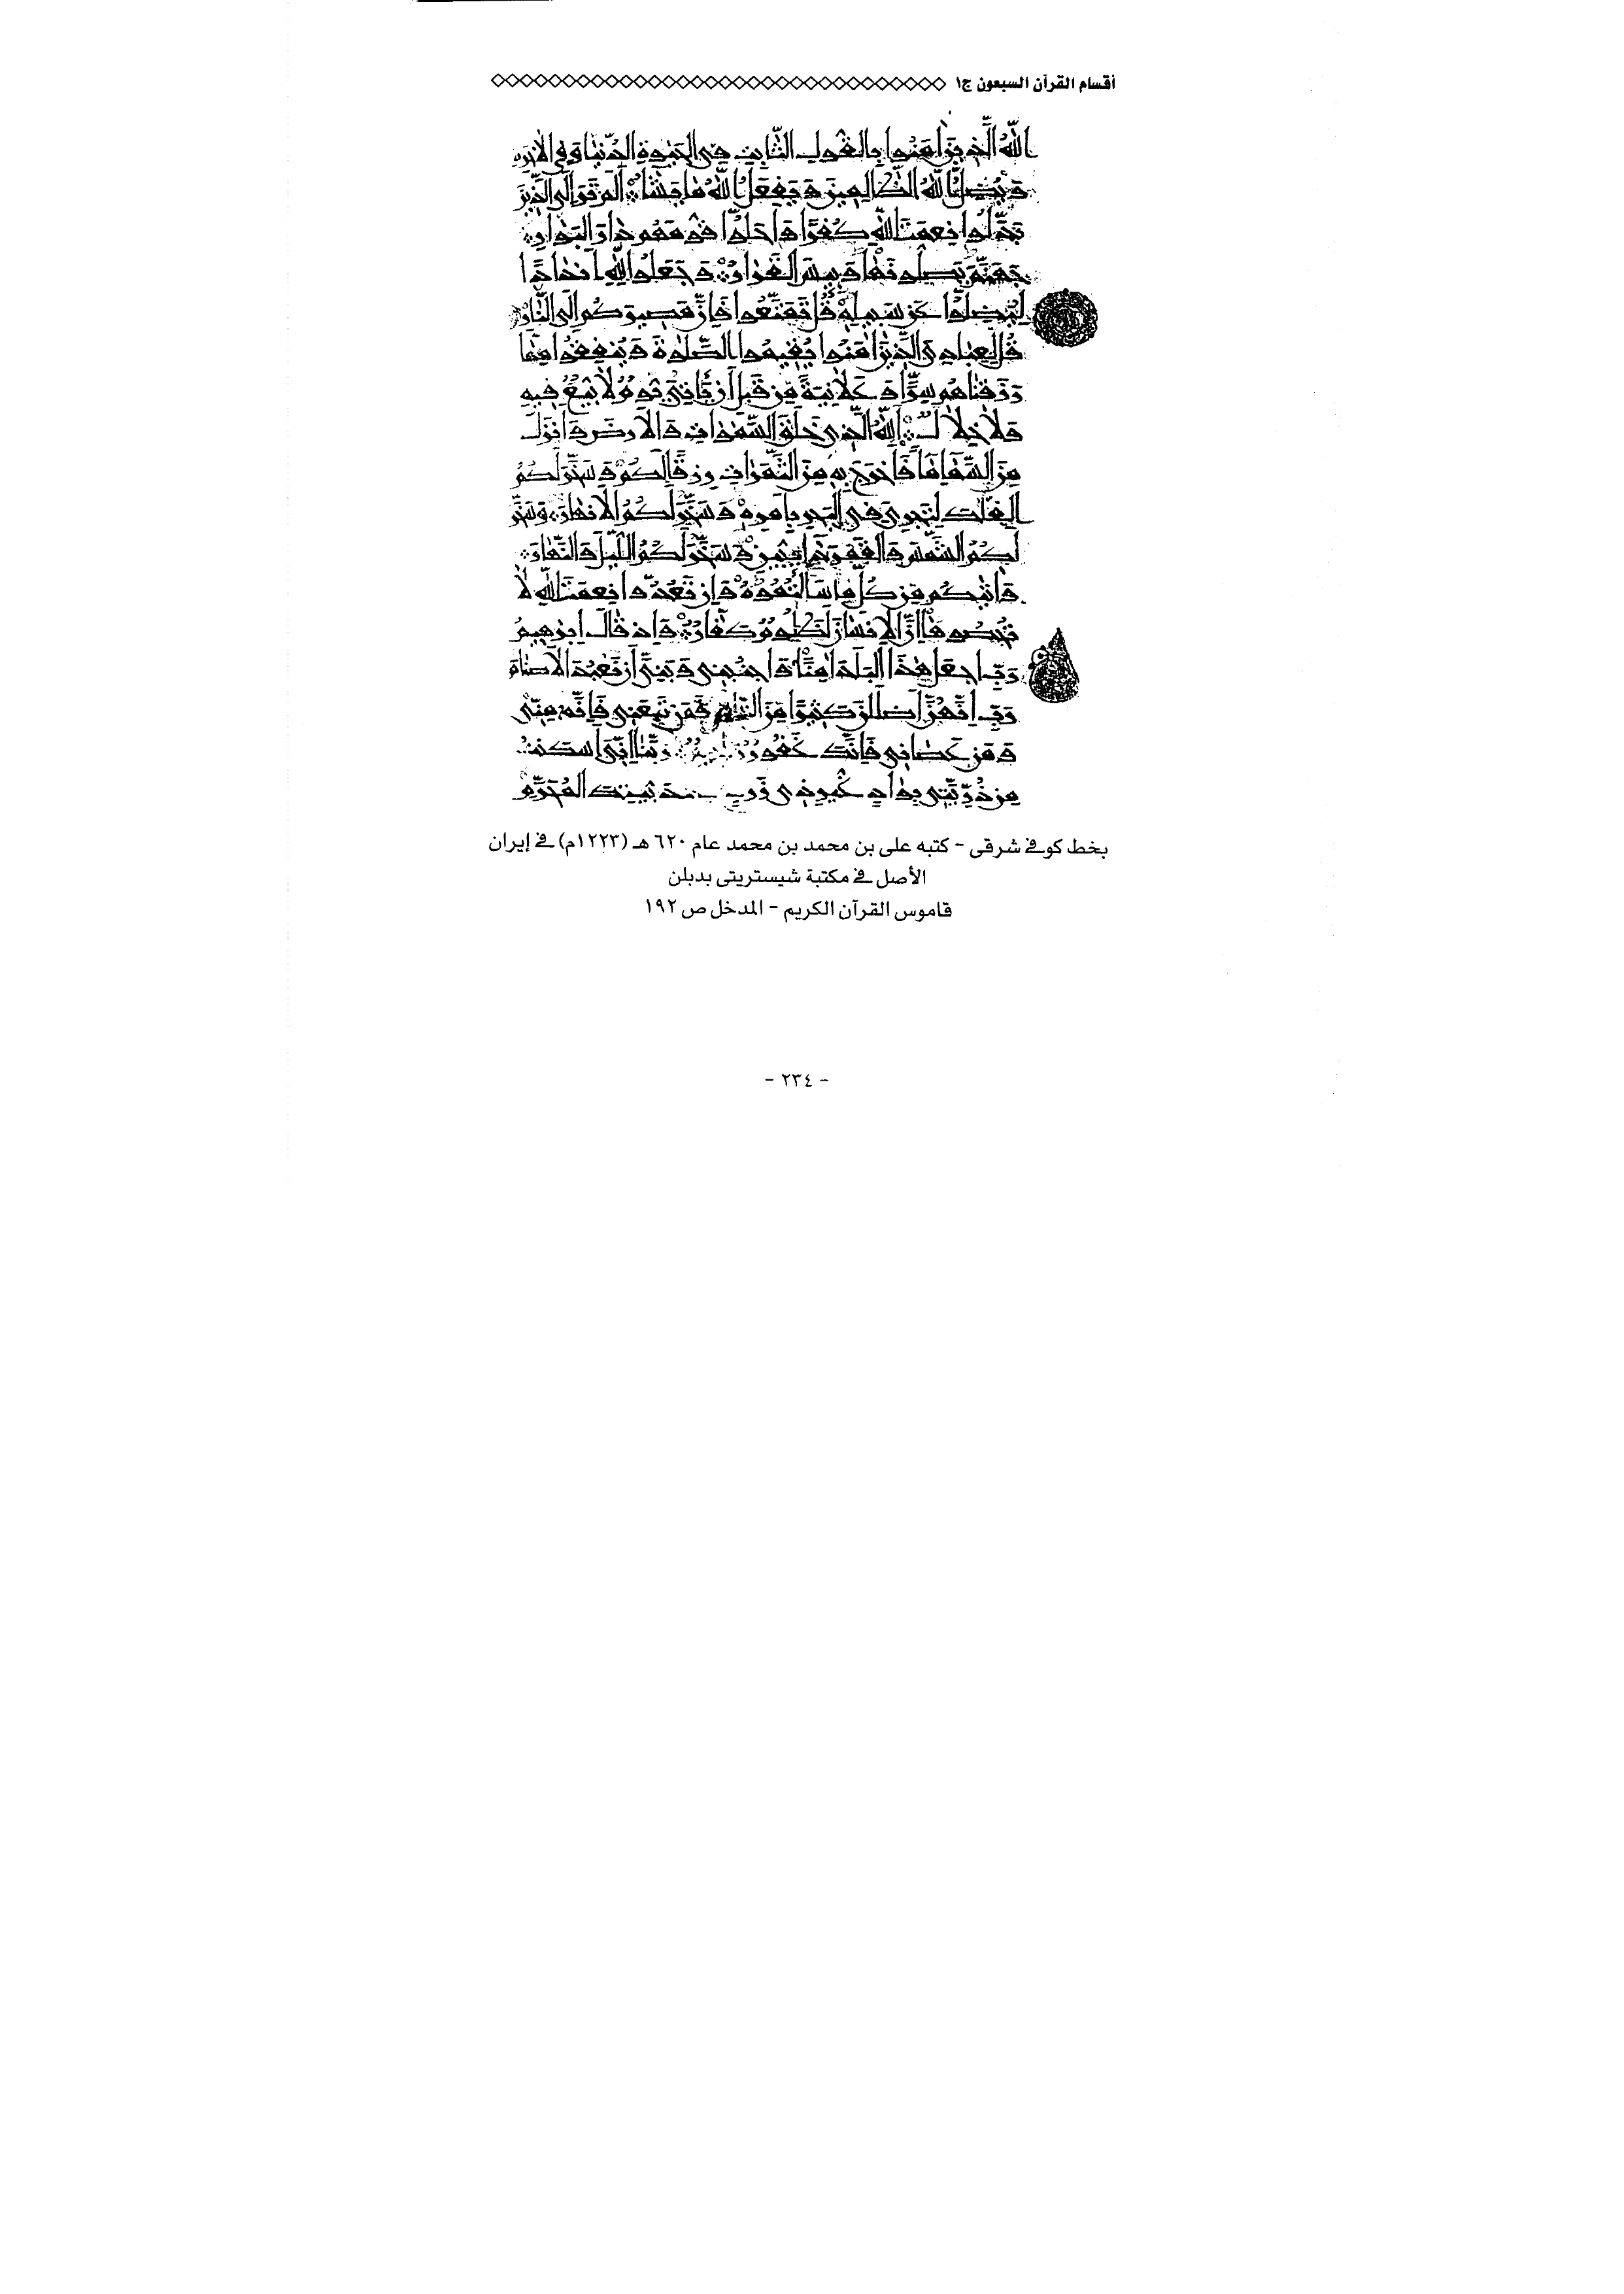 أقسام القرآن السبعون ج١
الله الذين امنوا بالقول الثابت في الحيوة الدنيا وفي الاخرة
ويضل الله الظالمين ويفعل الله ما يشاء الم تر الى الذين
بدلوا نعمت الله كفرا واحلوا قومهم دار البوار
جهنم يصلونها وبئس القرار وجعلوا لله اندادا
ليضلوا عن سبيله قل تمتعوا فان مصيركم الى النار
قل لعبادي الذين امنوا يقيموا الصلوة وينفقوا مما
رزقناهم سرا وعلانية من قبل أن يأتي يوم لا بيع فيه
ولا خلال الله الذي خلق السموات والارض وانزل
من السماء ماء فاخرج به من الثمرات رزقا لكم وسخر لكم
الفلك لتجري في البحر بامره وسخر لكم الانهار وسخر
لكم الشمس والقمر دائبين وسخر لكم الليل والنهار
واتيكم من كل ما سألتموه وان تعدوا نعمت الله لا
تحصوها ان الانسان لظلوم كفار واذ قال ابرهيم
رب اجعل هذا البلد امنا واجنبني وبني أن نعبد الاصنام
رب انهن اضللن كثيرا من الناس فمن تبعني فانه مني
ومن عصاني فانك غفور رحيم ربنا اني اسكنت
من ذريتي بواد غير ذي زرع عند بيتك المحرم
بخط كوفي شرقى - كتبه على بن محمد بن محمد عام ٦٢٠ هـ (١٢٢٣م) في إيران
الأصل في مكتبة شيستريتى بدبلن
قاموس القرآن الكريم - المدخل ص ١٩٢
- ٢٣٤ -